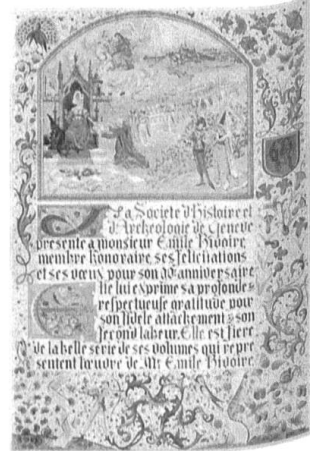 La Societe d'Histoire et
d'Archeologie de Geneve
presente a monsieur Emile Rivoire,
membre honoraire, ses felicitations
et ses vœux pour son anniversaire
Elle lui exprime sa profonde &
respectueuse gratitude pour
son fidele attachement & son
fecond labeur. Elle est fiere
de la belle serie de ses volumes qui repre
sentent l'œuvre de Mr Emile Rivoire